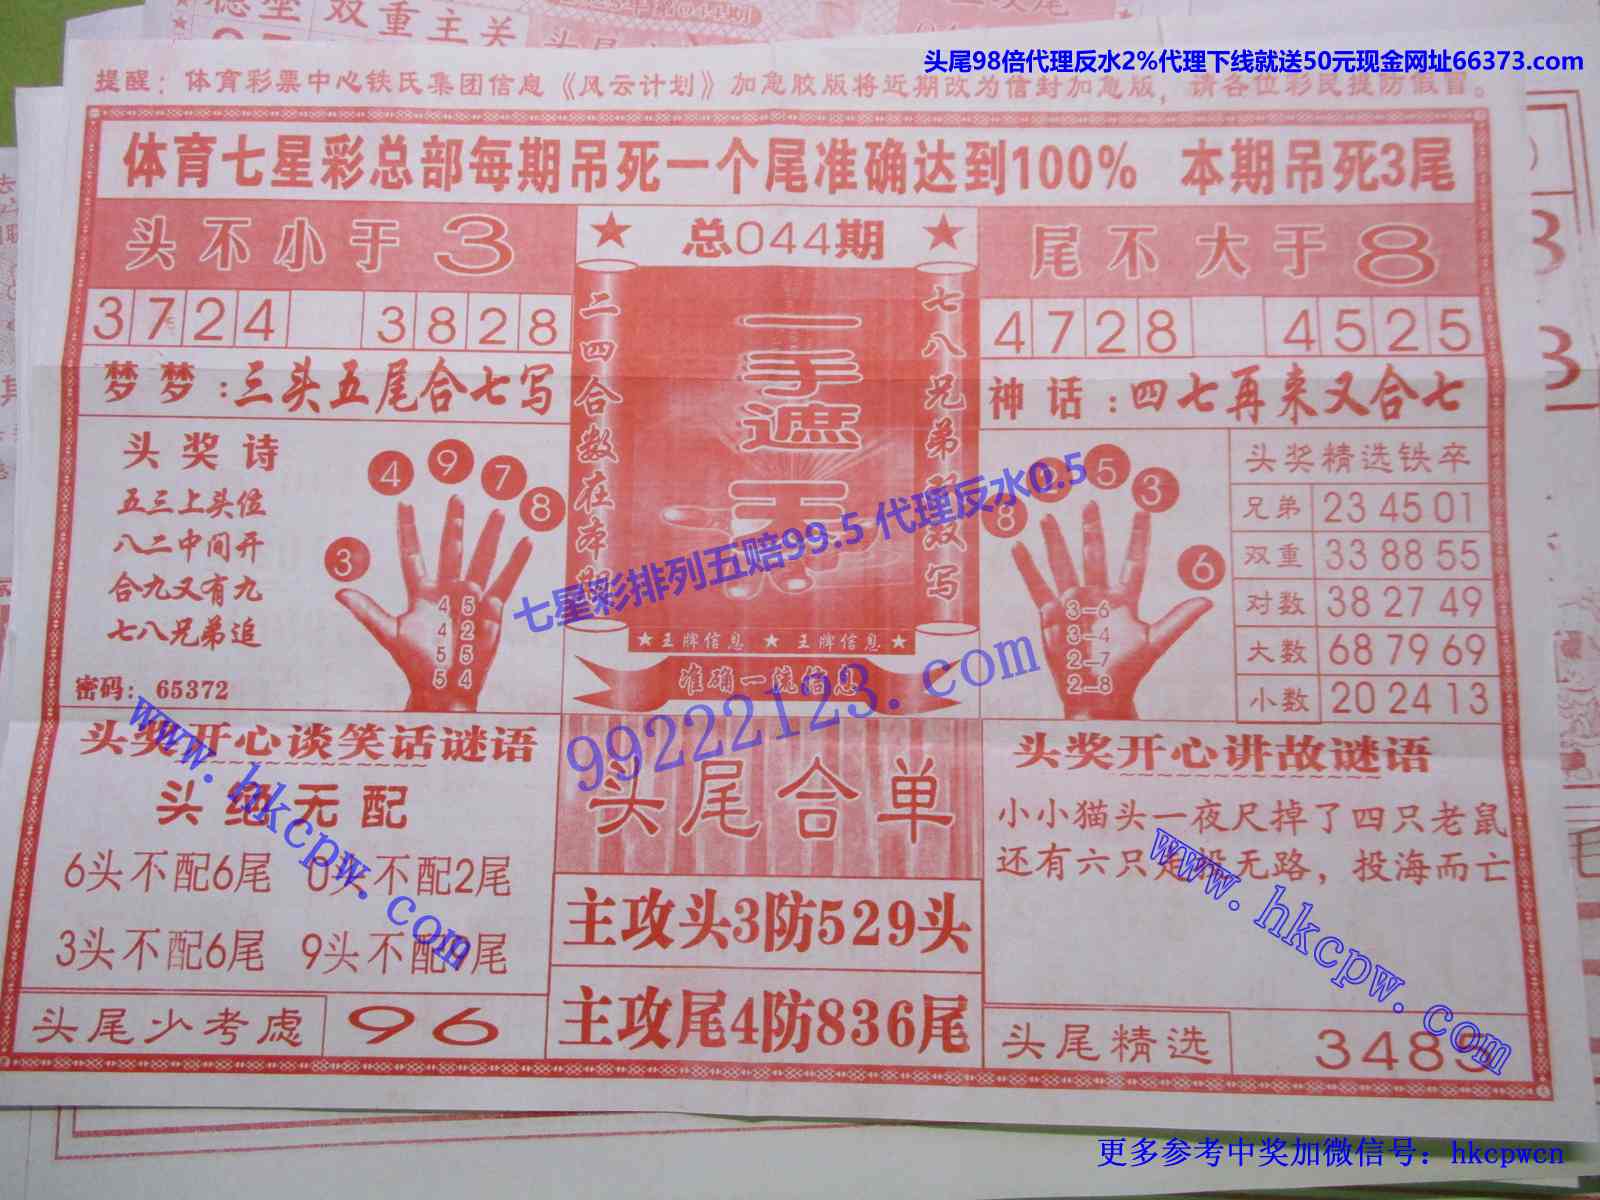 稳坐 双重主关
头尾98倍代理反水2%代理下线就送50元现金网址66373.com
提醒：体育彩票中心铁氏集团信息《风云计划》加急胶版将近期改为信封加急版，请各位彩民提防假冒。
体育七星彩总部每期吊死一个尾准确达到100% 本期吊死3尾
头不小于3
总044期
尾不大于8
3724 3828
4728 4525
梦梦：三头五尾合七写
神话：四七再来又合七
二四合数在本期
一手遮天
七八兄弟双双写
头奖诗
五三上头位
八二中间开
合九又有九
七八兄弟追
密码：65372
4 9 7 8 3
4 5
4 2
5 5
5 4
七星彩排列五赔99.5 代理反水0.5
8 5 3 6
3-6
3-4
2-7
2-8
头奖精选铁卒
兄弟 23 45 01
双重 33 88 55
对数 38 27 49
大数 68 79 69
小数 20 24 13
★王牌信息 ★ 王牌信息★
准确一流信息
99222123.com
www.hkcpw.com
头奖开心谈笑话谜语
头绝无配
6头不配6尾 0头不配2尾
3头不配6尾 9头不配9尾
头尾少考虑 96
头尾合单
主攻头3防529头
主攻尾4防836尾
头奖开心讲故谜语
小小猫头一夜尺掉了四只老鼠
还有六只走投无路，投海而亡
www.hkcpw.com
头尾精选 3485
更多参考中奖加微信号：hkcpwcn